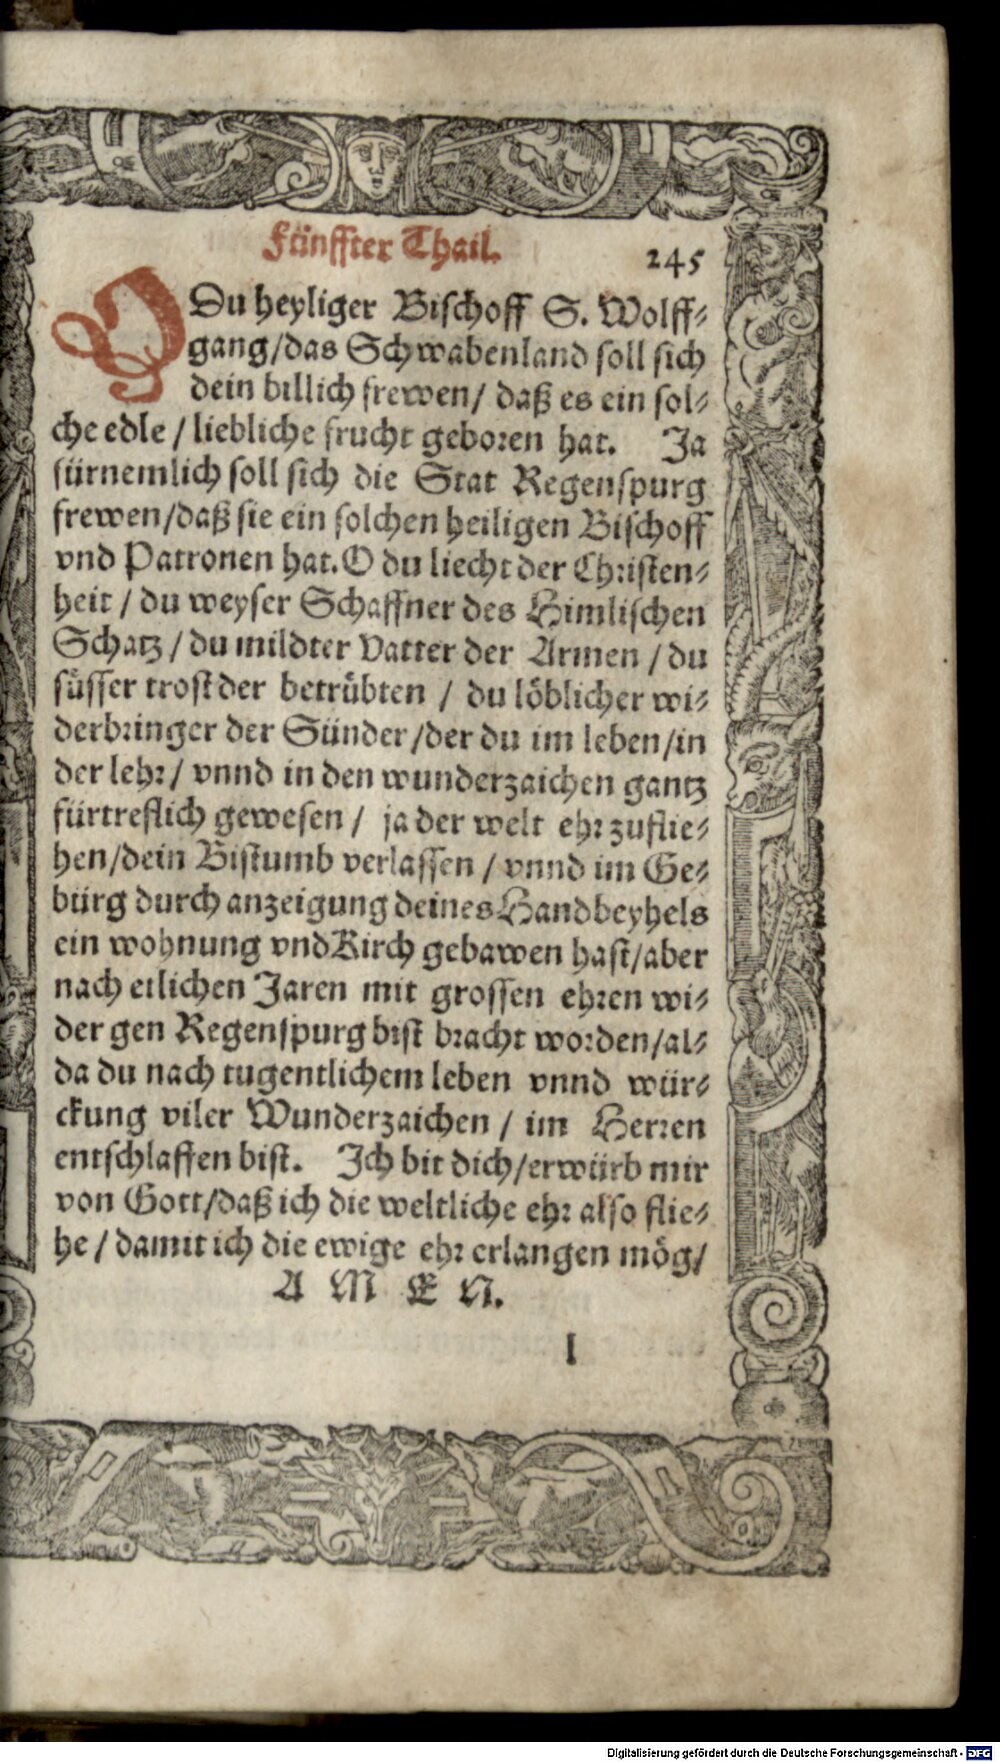 Fünffter Thail.
245
O Du heyliger Bischoff S. Wolff-
gang/das Schwabenland soll sich
dein billich frewen/ daß es ein sol-
che edle / liebliche frucht geboren hat. Ja
fürnemlich soll sich die Stat Regenspurg
frewen/daß sie ein solchen heiligen Bischoff
vnd Patronen hat. O du liecht der Christen-
heit / du weyser Schaffner des Himlischen
Schatz / du mildter Vatter der Armen / du
süsser trost der betrübten / du löblicher wi-
derbringer der Sünder /der du im leben/in
der lehr/ vnnd in den wunderzaichen gantz
fürtreflich gewesen / ja der welt ehr zuflie-
hen/dein Bistumb verlassen / vnnd im Ge-
bürg durch anzeigung deines Handbeyhels
ein wohnung vnd Kirch gebawen hast/aber
nach etlichen Jaren mit grossen ehren wi-
der gen Regenspurg bist bracht worden/al-
da du nach tugentlichem leben vnnd wür-
ckung viler Wunderzaichen / im Herren
entschlaffen bist. Ich bit dich/erwürb mir
von Gott/daß ich die weltliche ehr also flie-
he / damit ich die ewige ehr erlangen mög/
A M E N.
I
Digitalisierung gefördert durch die Deutsche Forschungsgemeinschaft - DFG